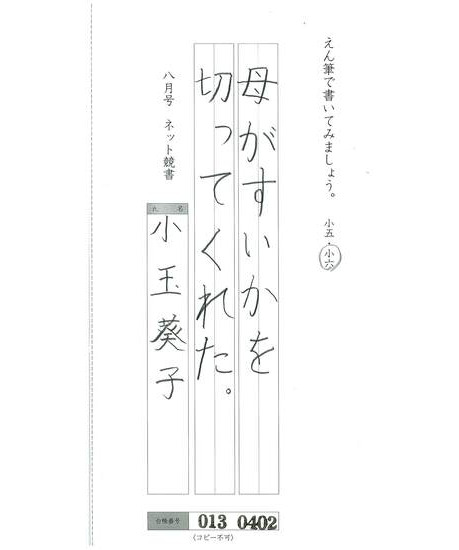 えん筆で書いてみましょう。 小五・小六
母がすいかを
切ってくれた。
八月号 ネット競書
氏名
小玉葵子
合機番号 013 0402
(コピー不可)